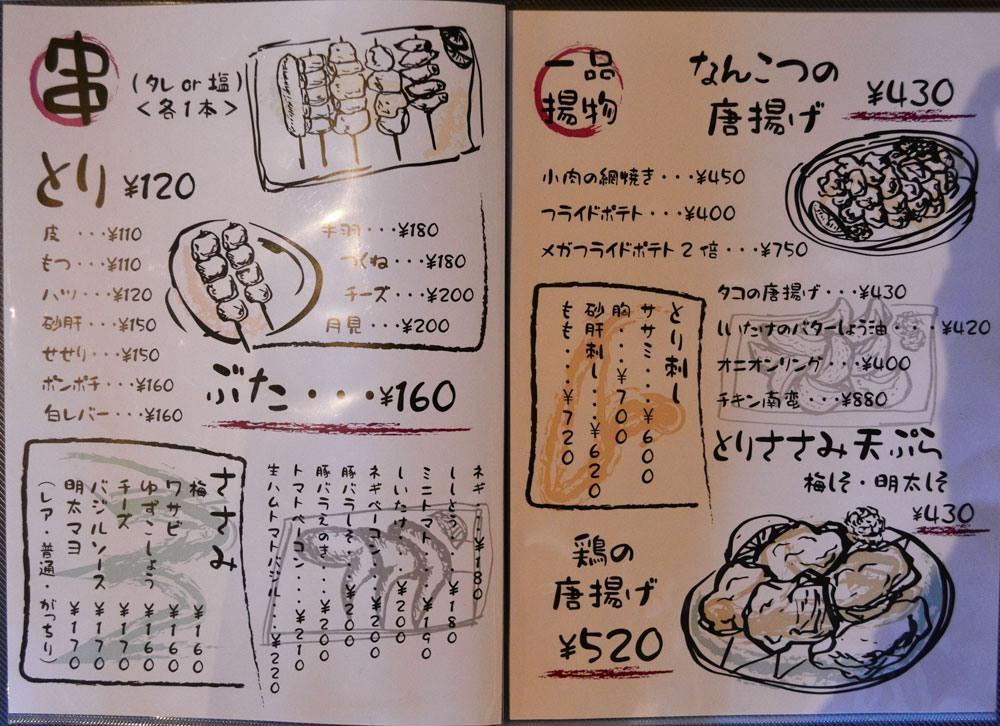 串
(タレ or 塩)
<各1本>
とり ¥120
皮 ・・・¥110
もつ・・・¥110
ハツ・・・¥120
砂肝・・・¥150
せせり・・・¥150
ボンボチ・・・¥160
白レバー・・・¥160
手羽・・・¥180
つくね・・・¥180
チーズ・・・¥200
月見・・・¥200
ぶた・・・¥160
ささみ
梅 ¥160
ワサビ ¥160
ゆずこしょう ¥160
チーズ ¥170
バジルソース ¥170
明太マヨ ¥170
(レア・普通・がっちり)
ネギ・・・¥180
ししとう・・・¥180
ミニトマト・・・¥190
しいたけ・・・¥200
ネギベーコン・・・¥200
豚バラしそ・・・¥200
豚バラえのき・・・¥200
トマトベーコン・・・¥210
生ハムトマトバジル・・・¥220
一品
揚物
なんこつの
唐揚げ
¥430
小肉の網焼き・・・¥450
フライドポテト・・・¥400
メガフライドポテト2倍・・・¥750
とり刺し
ササミ・・・¥600
胸・・・¥700
砂肝刺し・・・¥620
もも・・・¥720
タコの唐揚げ・・・¥430
しいたけのバターしょう油・・・¥420
オニオンリング・・・¥400
チキン南蛮・・・¥880
とりささみ天ぷら
梅しそ・明太しそ
¥430
鶏の
唐揚げ
¥520